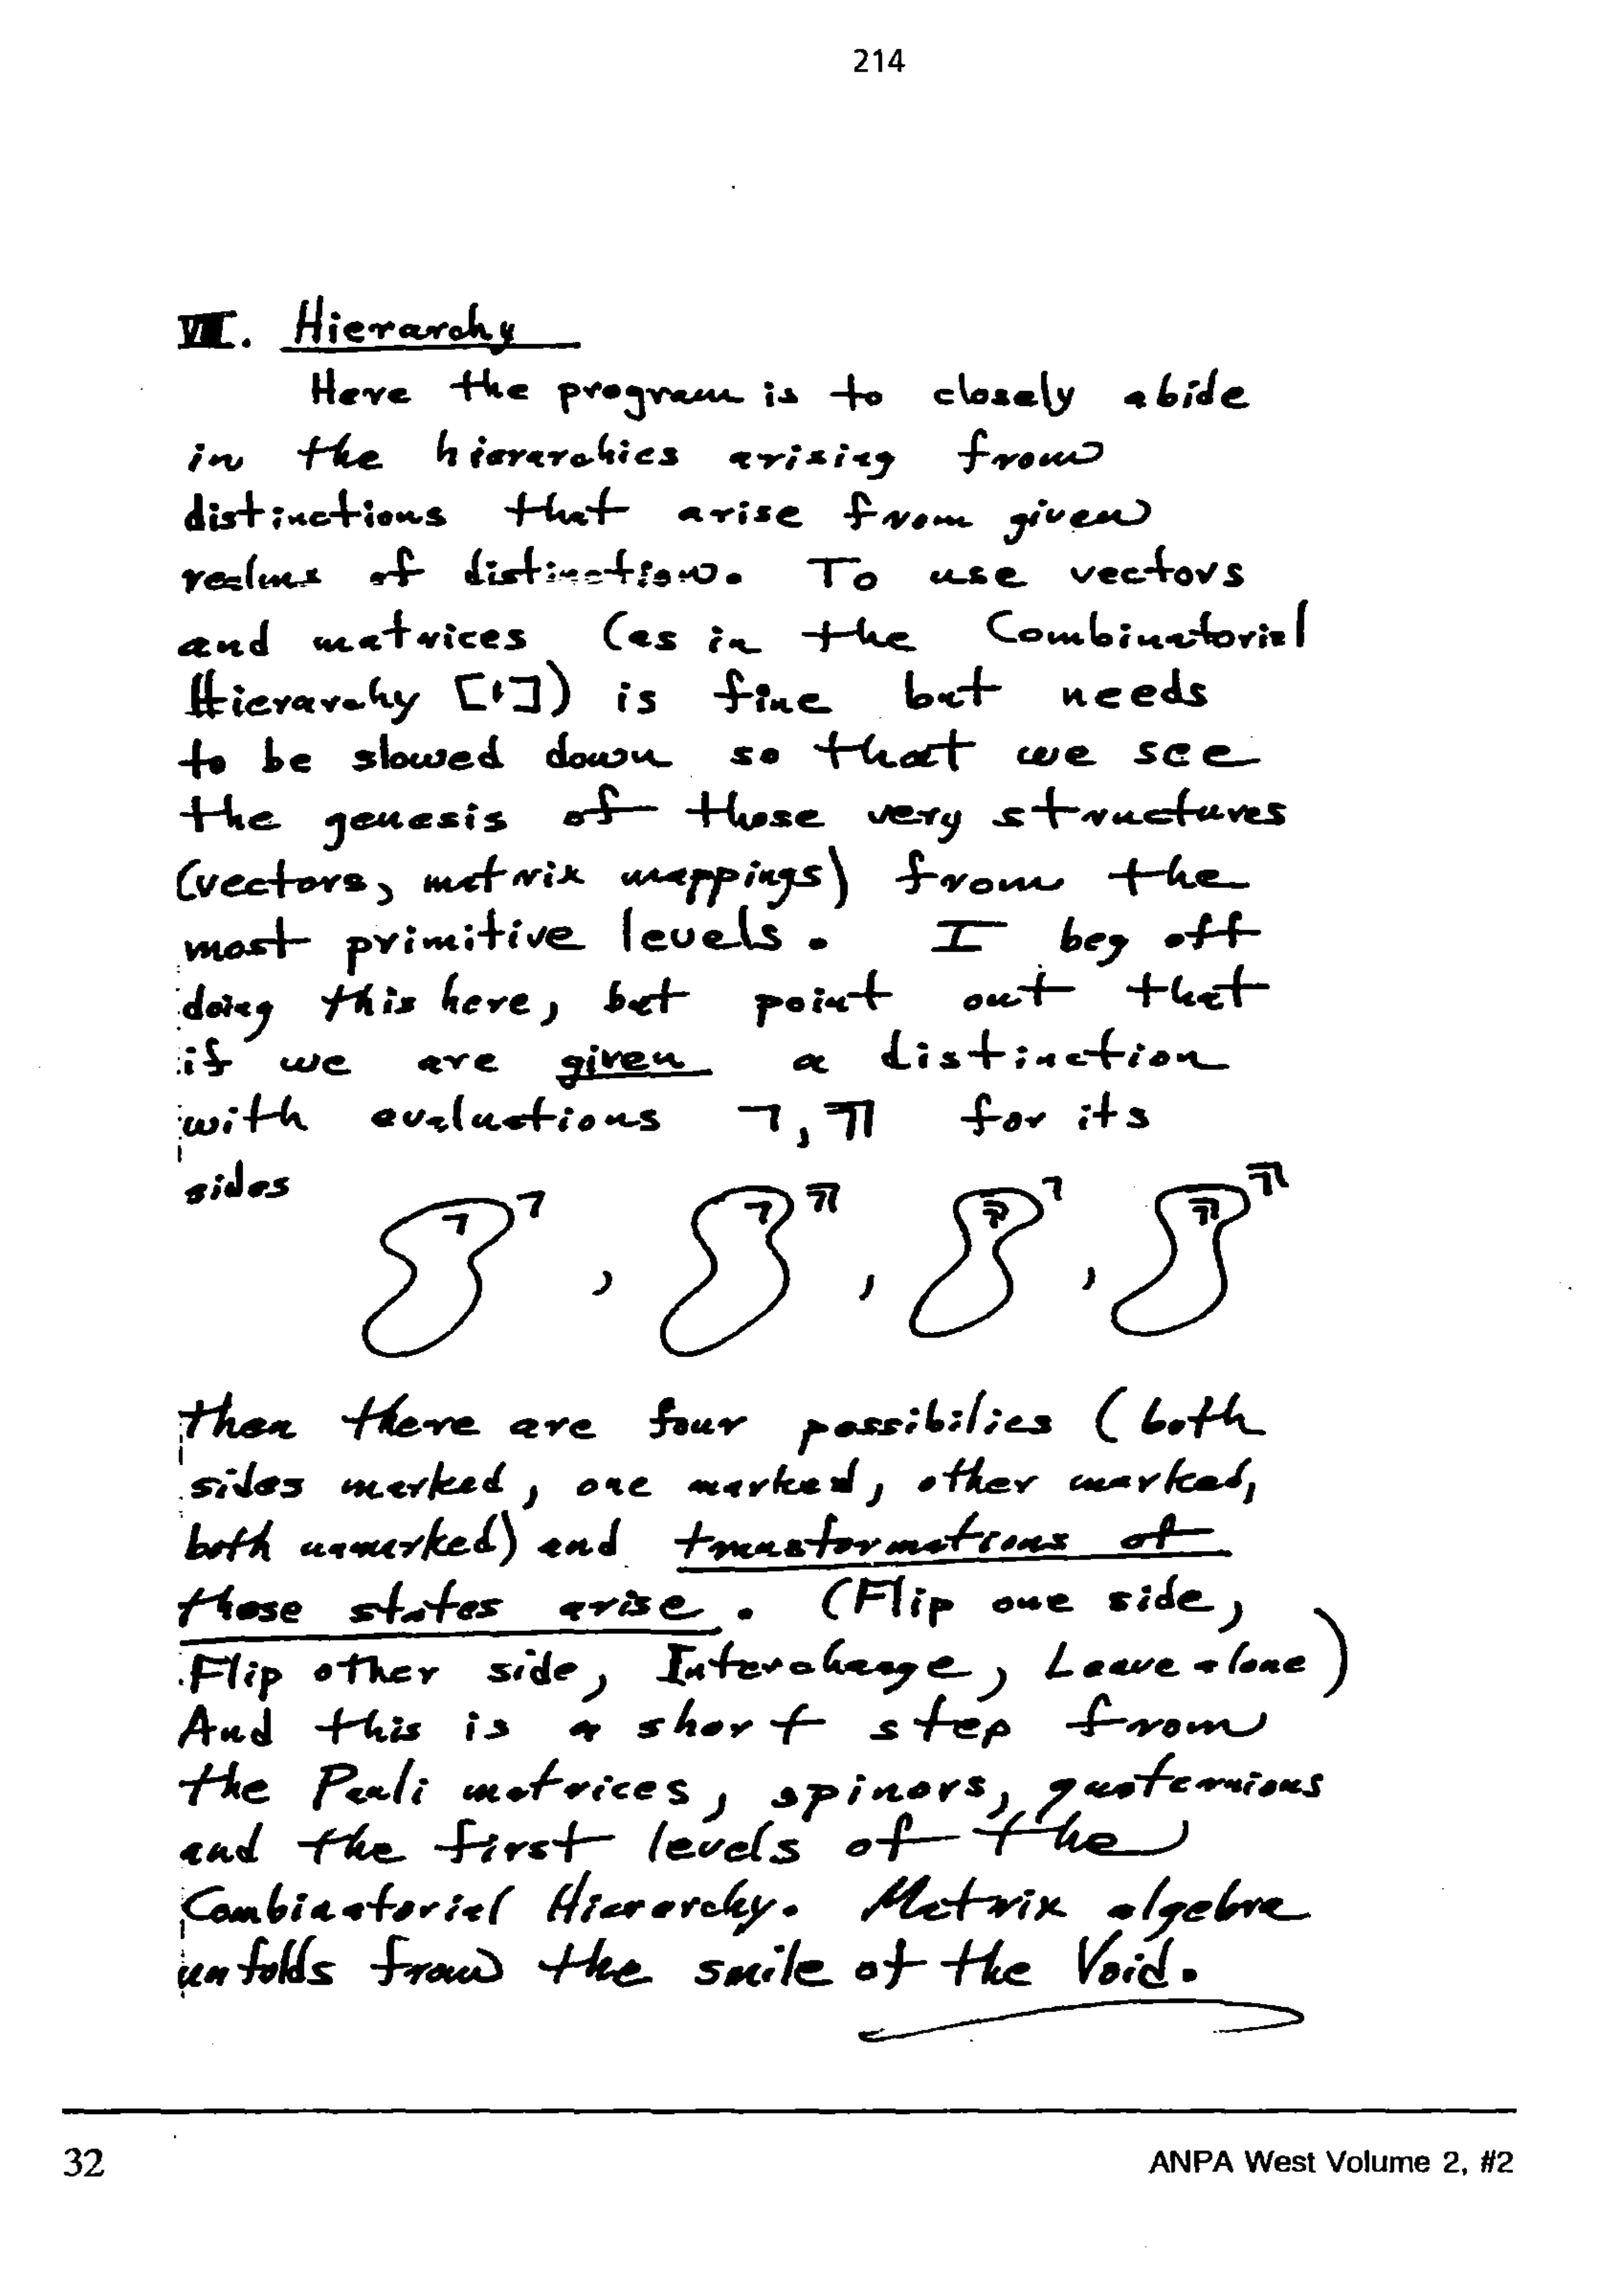 214
VII. Hierarchy
Here the program is to closely abide
in the hierarchies arising from
distinctions that arise from given
realms of distinction. To use vectors
and matrices (as in the Combinatorial
Hierarchy [1]) is fine but needs
to be slowed down so that we see
the genesis of those very structures
(vectors, matrix mappings) from the
most primitive levels. I beg off
doing this here, but point out that
if we are given a distinction
with evaluations ㄱ, ㄲ for its
sides
ㄱ ㄱ , ㄱ ㄲ , ㄲ ㄱ , ㄲ ㄲ
then there are four possibilies (both
sides marked, one marked, other marked,
both unmarked) and transformations of
these states arise. (Flip one side,
Flip other side, Interchange, Leave alone)
And this is a short step from
the Pauli matrices, spinors, quaternions
and the first levels of the
Combinatorial Hierarchy. Matrix algebra
unfolds from the smile of the Void.
32
ANPA West Volume 2, #2